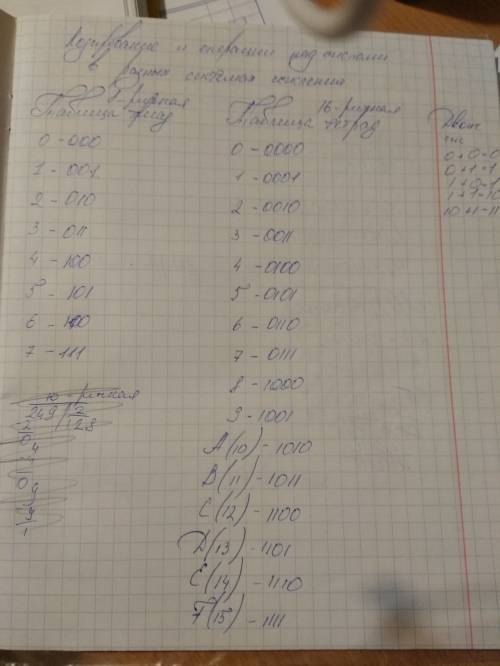 Кодирование и операции над числами
в разных системах счисления
8-ричная
Таблица триад
0 - 000
1 - 001
2 - 010
3 - 011
4 - 100
5 - 101
6 - 100
7 - 111
10-ричная
249 2
16-ричная
Таблица тетрад
0 - 0000
1 - 0001
2 - 0010
3 - 0011
4 - 0100
5 - 0101
6 - 0110
7 - 0111
8 - 1000
9 - 1001
A(10) - 1010
B(11) - 1011
C(12) - 1100
D(13) - 1101
E(14) - 1110
F(15) - 1111
0+0=0
0+1=1
1+0=1
1+1=10
10+1=11